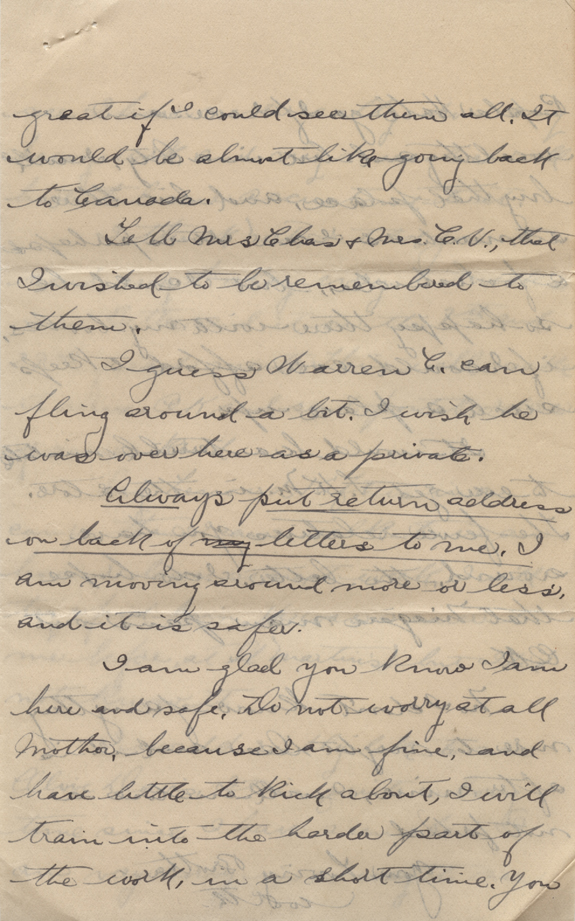 great if I could see them all. It
would be almost like going back
to Canada.
Tell Mrs Chas & Mrs. C.V., that
I wished to be remembered to
them.
I guess Warren C. can
fling around a bit. I wish he
was over here as a private.
Always put return address
on back of my letters to me. I
am moving around more or less,
and it is safer.
I am glad you know I am
here and safe. Do not worry at all
Mother, because I am fine, and
have little to kick about, I will
train into the harder part of
the work, in a short time. You